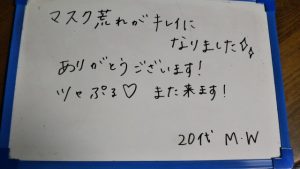 マスク荒れがキレイに
なりました✨
ありがとうございます!
ツヤぷる♡ また来ます!
20代 M・W